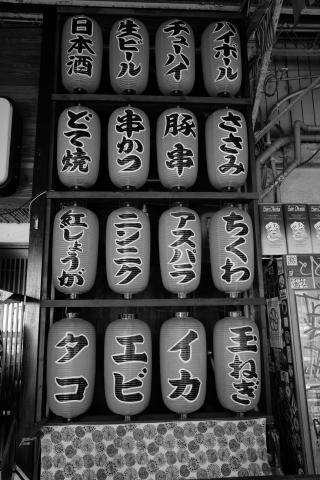 日本酒
生ビール
チューハイ
ハイボール
どて焼
串かつ
豚串
ささみ
紅しょうが
ニンニク
アスパラ
ちくわ
タコ
エビ
イカ
玉ねぎ